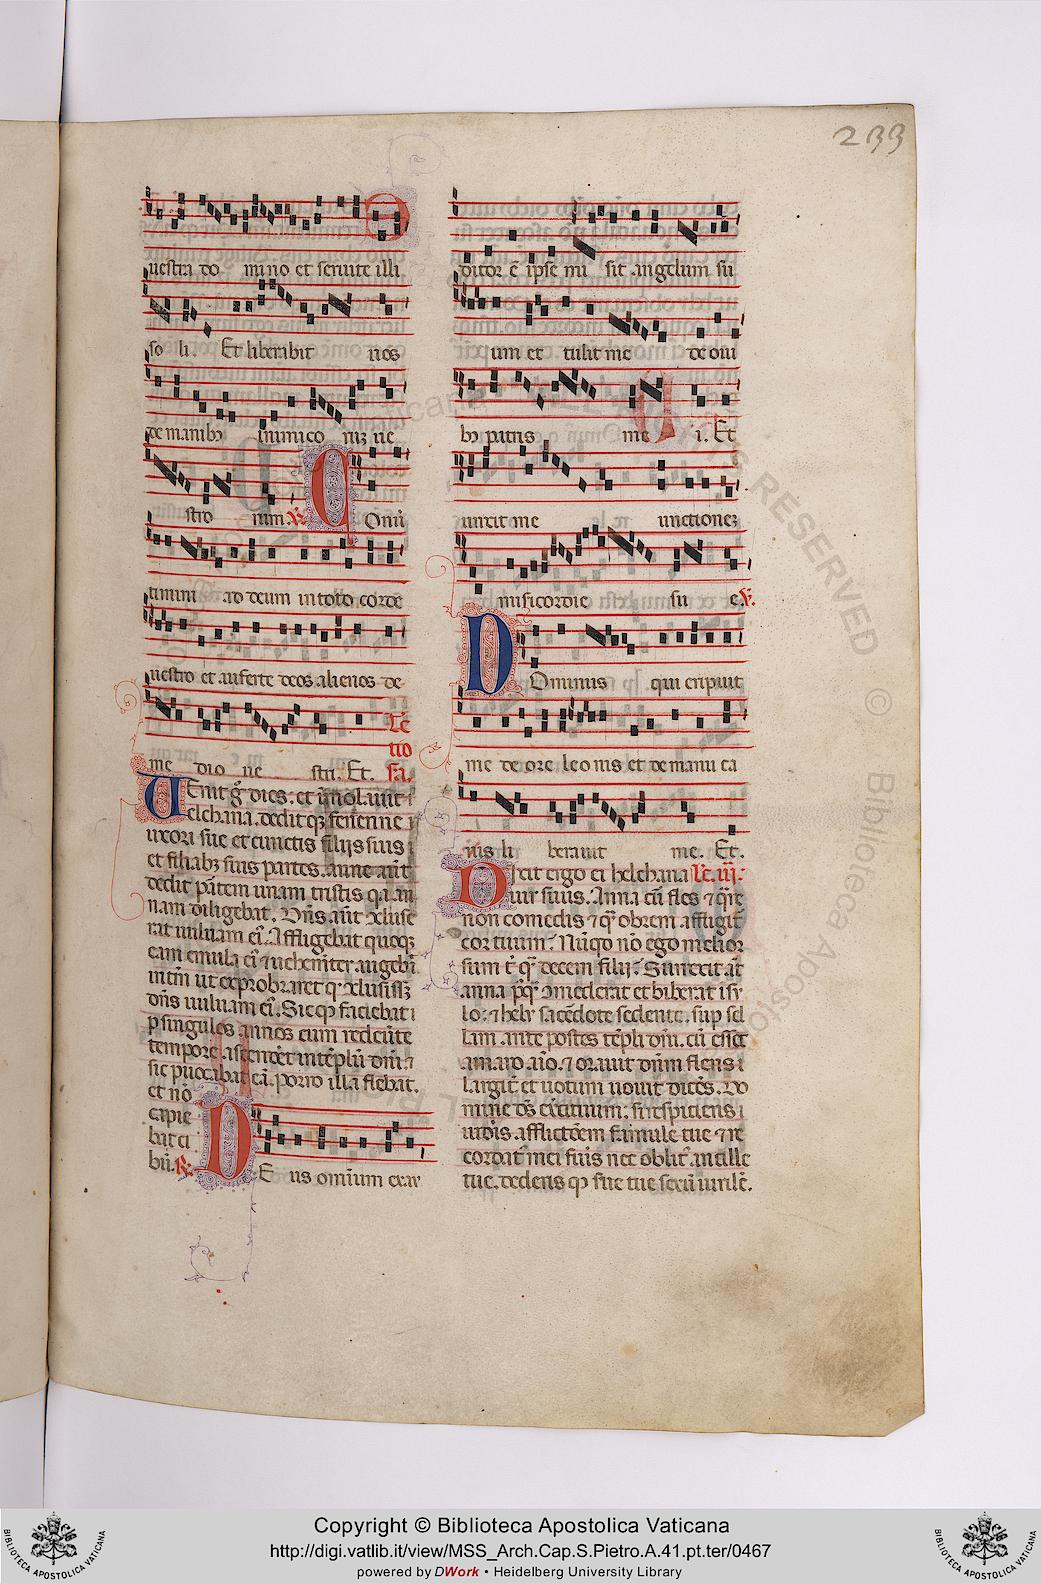 233
uestra do mino et seruite illi
so li. Et liberabit uos
de manibꝫ inimico rum ue
stro rum. ℟. COnuͥ
timini ad deum in toto corde
uestro et auferte deos alienos de
me dio ue stri. Et. Lectio
sa.
UEnit g̃ dies. et
elchana. dedit qꝫ fenenne
uxori sue et cunctis filijs suis
et filiabꝫ suis partes. anne aut̃
dedit ptem unam tristis q̃a an
nam diligebat. Dñs aut̃
rat uuluam ei᷒. Affligebat quoqꝫ
eam emula ei᷒ et uehemẽter augebat
intm̃ ut exprobraret
dñs uuluam ei᷒. Sicqꝫ faciebat
p singulos annos cum redeũte
tempore ascenderẽt in templũ dñi. et
sic puocabat eã. porro illa flebat.
et nõ
capie
bat ci
bũ. ℟.
DE us omnium exau
ditor ẽ ipse mi sit angelum su
um et tulit me de oui
bꝫ patris me i. Et
unxit me unctione
misericordie su e. ℣.
DOminus qui eripuit
me de ore leonis et de manu ca
nis li berauit me. Et.
DIxit ergo ei helchana Lc̃. iii.
uir suus. Anna cũ fles et q̃re
non comedis et q̃ obrem affligit᷑
cor tuum. Nũqd nõ ego melior
sum t̃ q̃ decem filij. Surrexit at̃
anna pq̃ comederat et biberat
lo. et hely sacẽdote sedente sup sel
lam ante postes tẽpli dñi. cũ esset
amaro aĩo. et orauit dñm flens
largit᷑ et uotum uouit dicẽs. Do
mine ds̃ exercituum. si respiciens
uidis afflictõem famule tue et re
cordat᷑ mei fuis nec oblit᷑ ancille
tue. dederis qꝫ serue tue sexũ uirilẽ.
© Biblioteca Apostolica Vaticana
Copyright © Biblioteca Apostolica Vaticana
http://digi.vatlib.it/view/MSS_Arch.Cap.S.Pietro.A.41.pt.ter/0467
powered by DWork • Heidelberg University Library
BIBLIOTECA APOSTOLICA VATICANA
BIBLIOTECA APOSTOLICA VATICANA